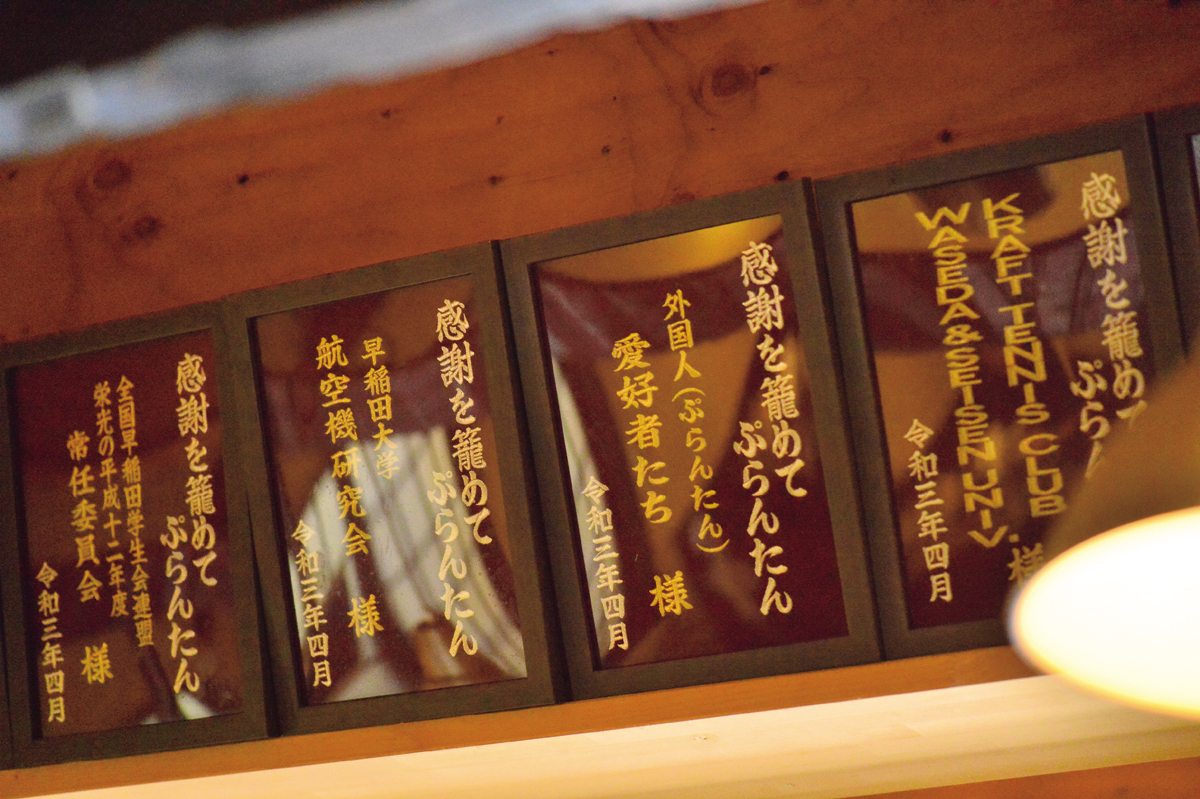 感謝を籠めて
ぷらんたん
KRAFT TENNIS CLUB
WASEDA&SEISEN UNIV.
様
令和三年四月
感謝を籠めて
ぷらんたん
外国人(ぷらんたん)
愛好者たち 様
令和三年四月
感謝を籠めて
ぷらんたん
早稲田大学
航空機研究会 様
令和三年四月
感謝を籠めて
ぷらんたん
全国早稲田学生会連盟
栄光の平成十二年度
常任委員会 様
令和三年四月